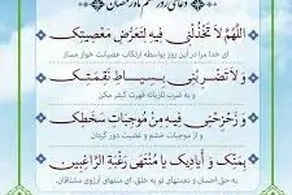 دعای روز ششم ماه رمضان
اللَّهُمَّ لاَ تَخْذُلْنِی فِیهِ لِتَعَرُّضِ مَعْصِیَتِکَ
ای خدا مرا در این روز بواسطه ارتکاب عصیانت خوار مساز
وَ لاَ تَضْرِبْنِی بِسِیَاطِ نَقِمَتِکَ
و به ضرب تازیانه قهرت کیفر مکن
وَ زَحْزِحْنِی فِیهِ مِنْ مُوجِبَاتِ سَخَطِکَ
و از موجبات خشم و غضبت دور گردان
بِمَنِّکَ وَ أَیَادِیکَ یَا مُنْتَهَی رَغْبَةِ الرَّاغِبِینَ
به حق احسان و نعمتهای تو به خلق، ای منتهای آرزوی مشتاقان.